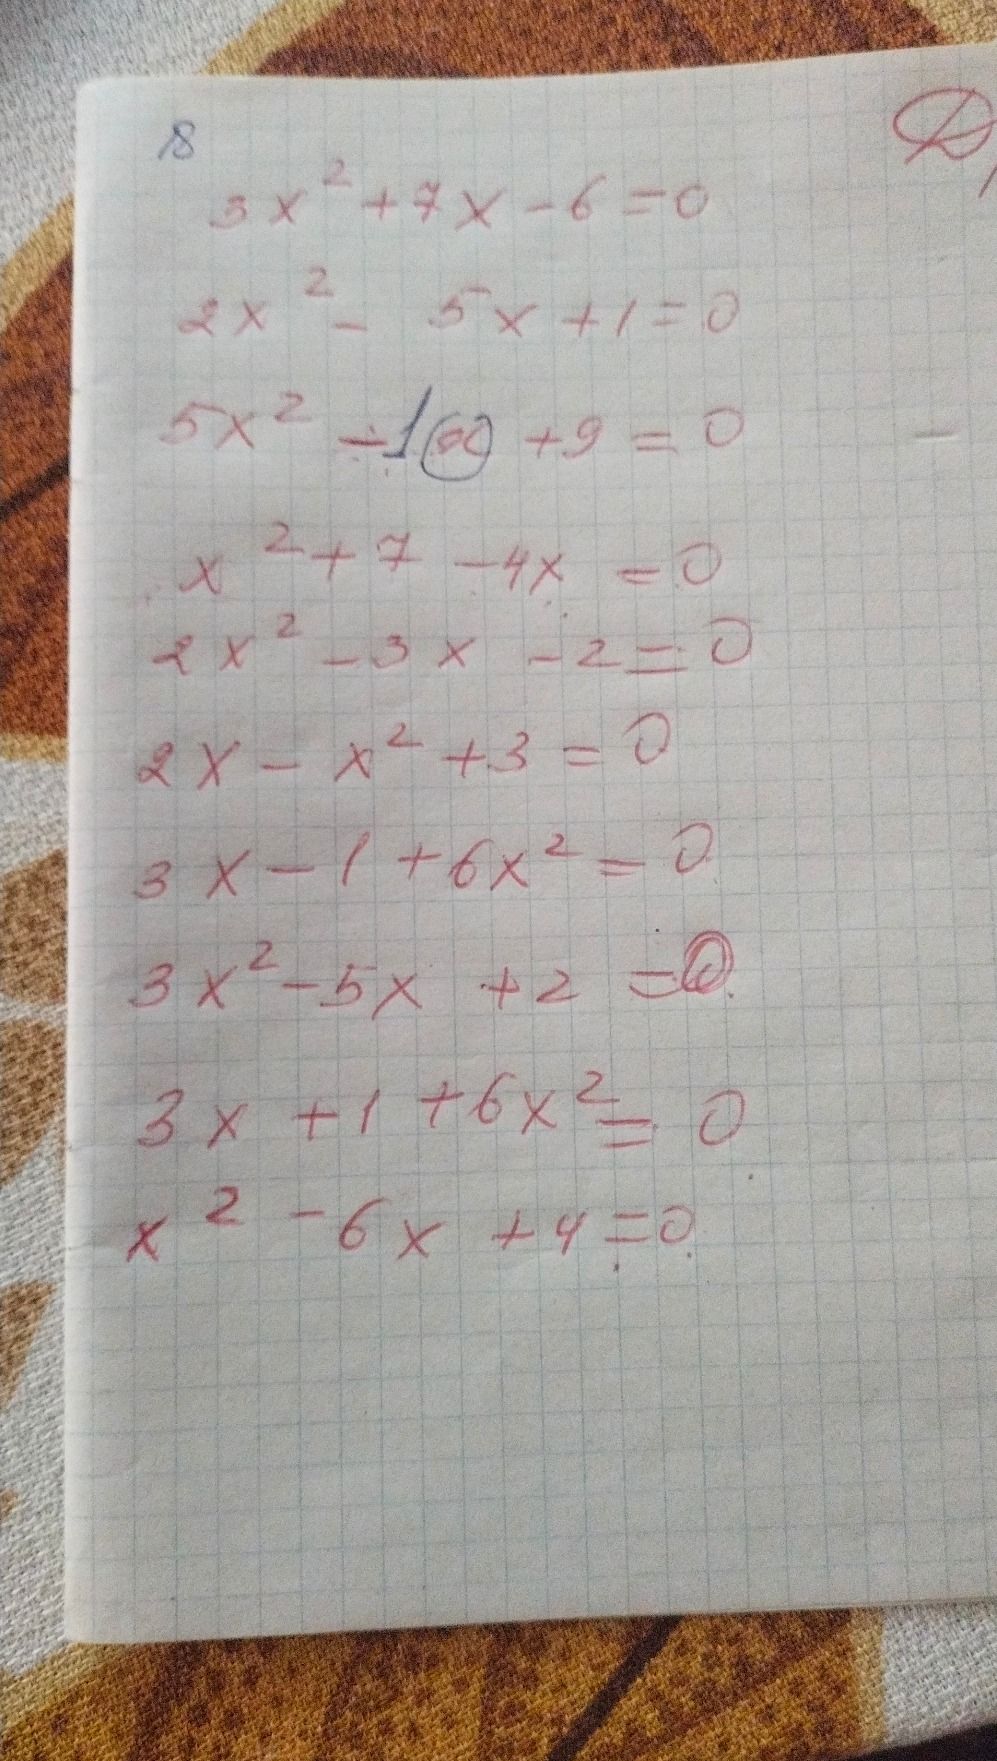 8
3x² + 7x - 6 = 0
2x² - 5x + 1 = 0
5x² + 9 = 0
x² + 7 - 4x = 0
2x² - 3x - 2 = 0
2x - x² + 3 = 0
3x - 1 + 6x² = 0
3x² - 5x + 2 = 0
3x + 1 + 6x² = 0
x² - 6x + 4 = 0